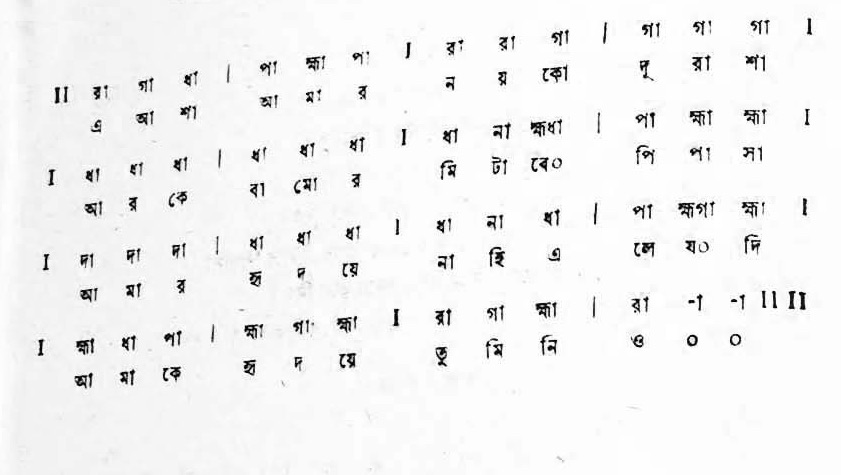 II রা গা ধা | পা হ্মা পা I রা রা গা | গা গা গা I
এ আ শা আ মা র ন য় কো দূ রা শা
I ধা ধা ধা | ধা ধা ধা I ধা না হ্মধা | পা হ্মা হ্মা I
আ র কে বা মো র মি টা বে০ পি পা সা
I দা দা দা | ধা ধা ধা I ধা না ধা | পা হ্মগা হ্মা I
আ মা র হৃ দ য়ে না হি এ লে য০ দি
I হ্মা ধা পা | হ্মা গা হ্মা I রা গা হ্মা | রা -া -া II II
আ মা কে হৃ দ য়ে তু মি নি ও ০ ০